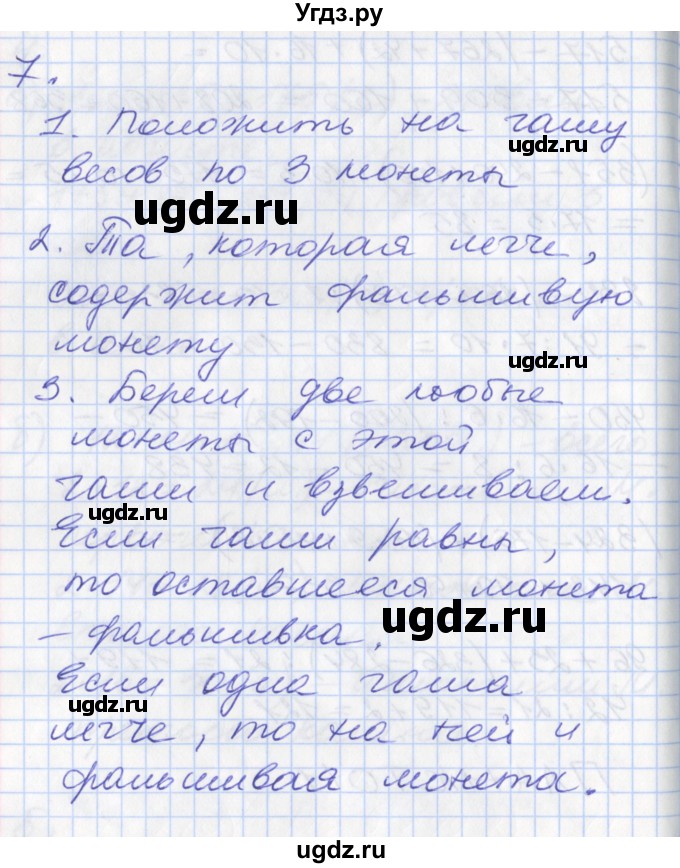 Угдз.ру
7.
1. Положить на чашу
весов по 3 монеты
2. Та, которая легче,
содержит фальшивую
монету
3. Берем две любые
монеты с этой
чаши и взвешиваем.
Если чаши равны,
то оставшееся монета
– фальшивка.
Если одна чаша
легче, то на ней и
фальшивая монета.
ugdz.ru
ugdz.ru
ugdz.ru
ugdz.ru
ugdz.ru
ugdz.ru
ugdz.ru
ugdz.ru